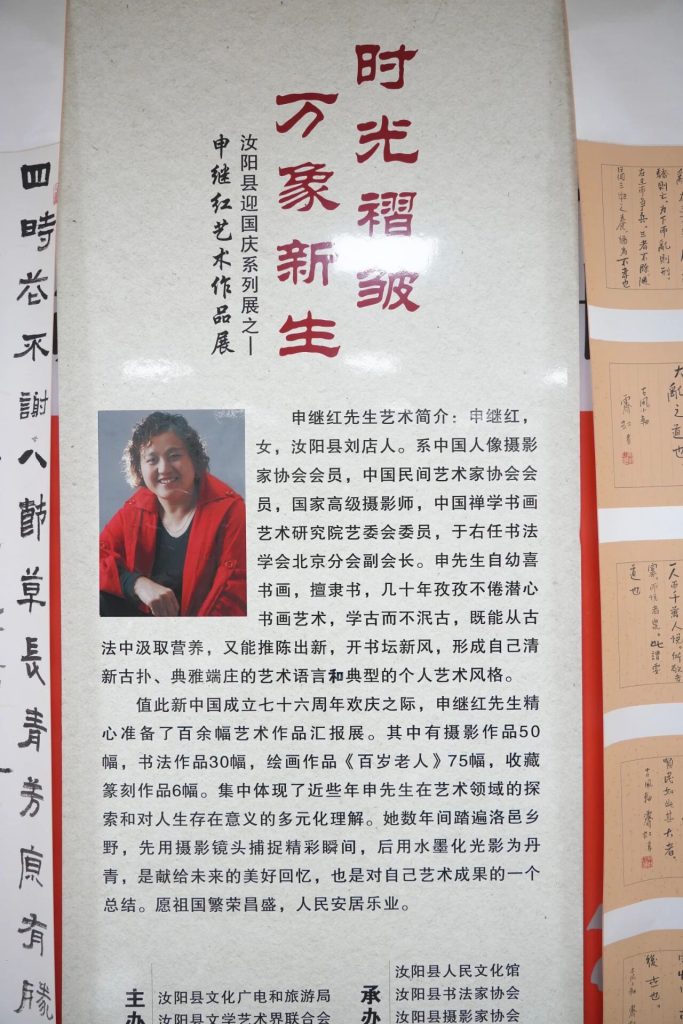 时光褶皱
万象新生
汝阳县迎国庆系列展之一
申继红艺术作品展
申继红先生艺术简介：申继红，
女，汝阳县刘店人。系中国人像摄影
家协会会员，中国民间艺术家协会会
员，国家高级摄影师，中国禅学书画
艺术研究院艺委会委员，于右任书法
学会北京分会副会长。申先生自幼喜
书画，擅隶书，几十年孜孜不倦潜心
书画艺术，学古而不泥古，既能从古
法中汲取营养，又能推陈出新，开书坛新风，形成自己清
新古扑、典雅端庄的艺术语言和典型的个人艺术风格。
值此新中国成立七十六周年欢庆之际，申继红先生精
心准备了百余幅艺术作品汇报展。其中有摄影作品50
幅，书法作品30幅，绘画作品《百岁老人》75幅，收藏
篆刻作品6幅。集中体现了近些年申先生在艺术领域的探
索和对人生存在意义的多元化理解。她数年间踏遍洛邑乡
野，先用摄影镜头捕捉精彩瞬间，后用水墨化光影为丹
青，是献给未来的美好回忆，也是对自己艺术成果的一个
总结。愿祖国繁荣昌盛，人民安居乐业。
主办
汝阳县文化广电和旅游局
汝阳县文学艺术界联合会
承办
汝阳县人民文化馆
汝阳县书法家协会
汝阳县摄影家协会
四時花不謝八節草長青芳原有勝
大亂之道也
一人而千萬人悦
道也